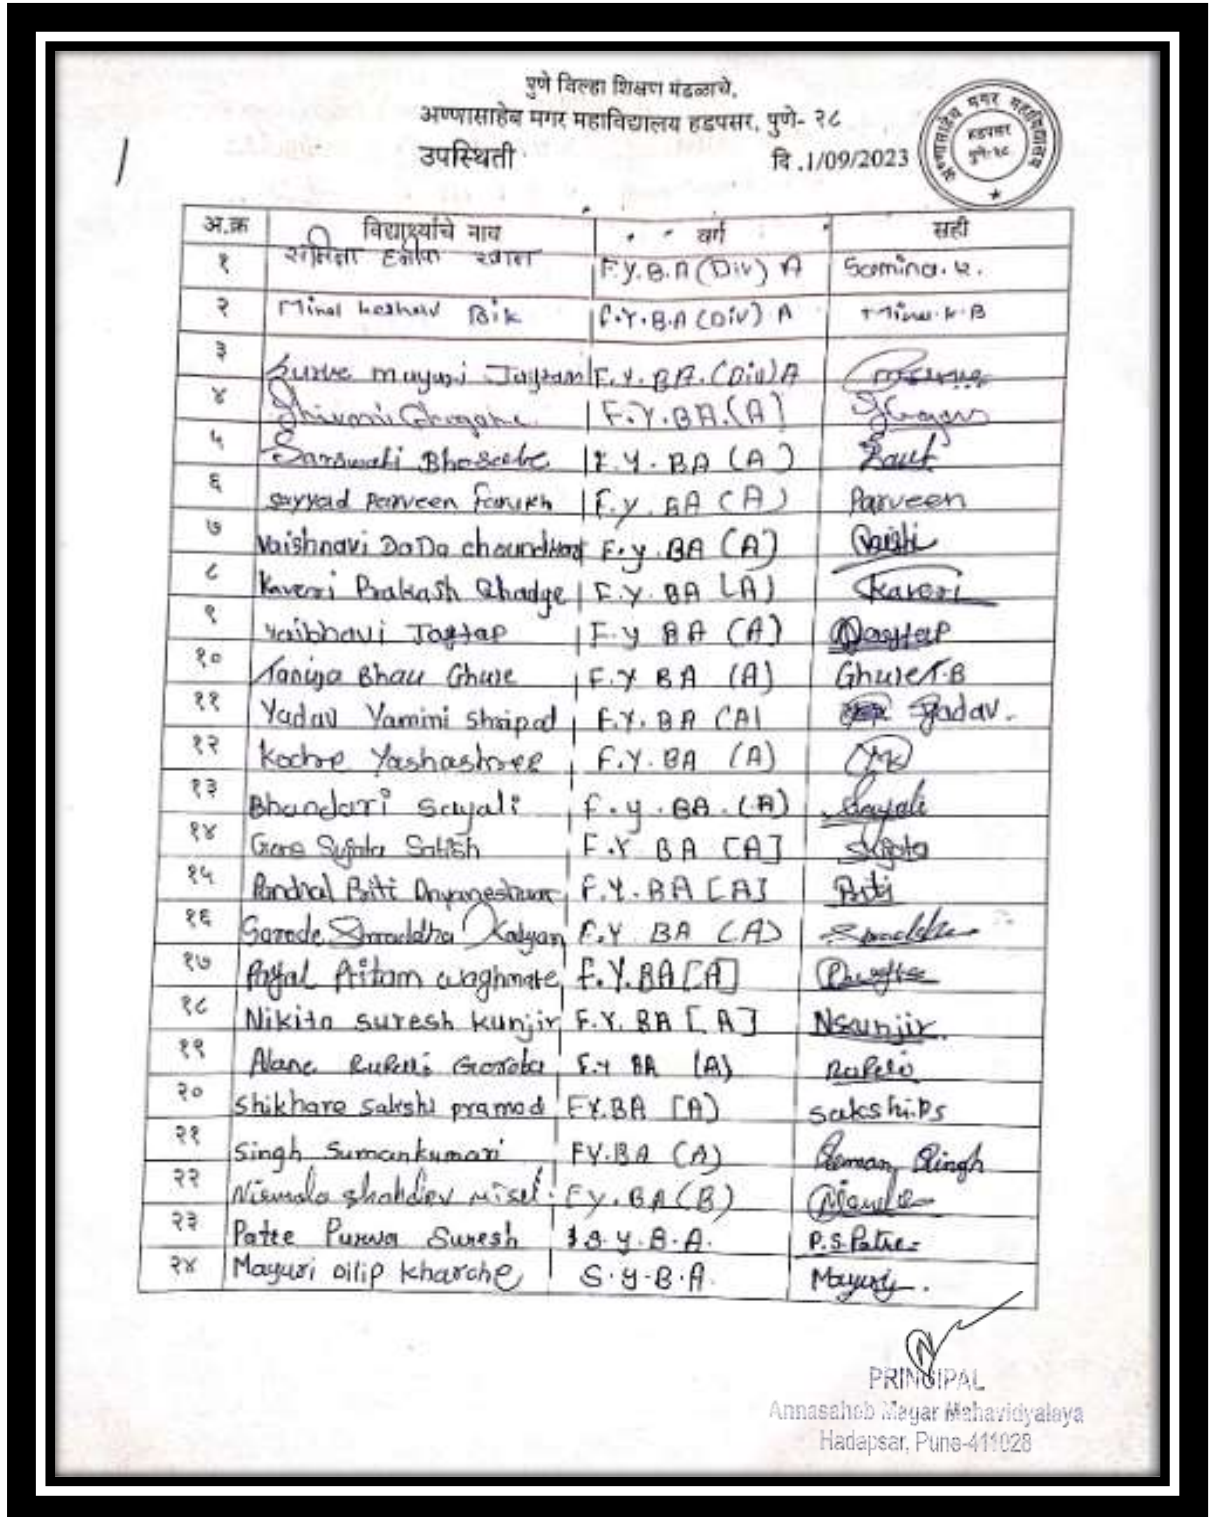 पुणे जिल्हा शिक्षण मंडळाचे,
अण्णासाहेब मगर महाविद्यालय हडपसर, पुणे- २८
उपस्थिती दि .1/09/2023
अण्णासाहेब मगर महाविद्यालय हडपसर पुणे-२८
अ.क्र विद्यार्थ्याचे नाव वर्ग सही
१ F.Y.B.A (Div) A Samina. k.
२ Minal keshav Bik F.Y.B.A (Div) A Minal.k.B
३ Surve mayuri Jagtam F.Y.BA.(Div)A
४ Shivani Ghogane F.Y.BA.(A)
५ Sarswati F.Y.BA (A) Raut
६ sayyad Parveen Farukh F.y.BA (A) Parveen
७ Vaishnavi DaDa choundhar F.y.BA (A) Vaishi
८ Kaveri Prakash Ghadge F.Y.BA (A) Kaveri
९ vaibhavi Jagtap F.y BA (A) Jagtap
१० Taniya Bhau Ghule F.Y BA (A) Ghule T.B
११ Yadav Yamini Shripad F.Y.BA (A) Yadav.
१२ Kochre Yashashree F.Y.BA (A) YK
१३ Bhandari sayali F.y.BA.(A) Sayali
१४ Gore Sujata Satish F.Y BA [A] Sujata
१५ Pandhal Priti Dnyaneshwar F.Y.BA [A] Priti
१६ Sarode Shraddha Kalyan F.Y BA (A) Shraddha
१७ Payal Pritam waghmare F.Y.BA[A]
१८ Nikita suresh kunjir F.Y.BA [A] Nskunjir.
१९ Alane Rupali Goroba F.Y BA (A) Rupali
२० Shikhare sakshi pramod FY.BA (A) sakshi.Ps
२१ Singh Sumankumari FY.BA (A) Suman Singh
२२ Nirmala shahdev misal. FY.BA(B)
२३ Patre Purva Suresh S.Y.B.A. P.S.Patre
२४ Mayuri Dilip kharche S.Y.B.A. Mayuri.
PRINCIPAL
Annasaheb Magar Mahavidyalaya
Hadapsar, Pune-411028